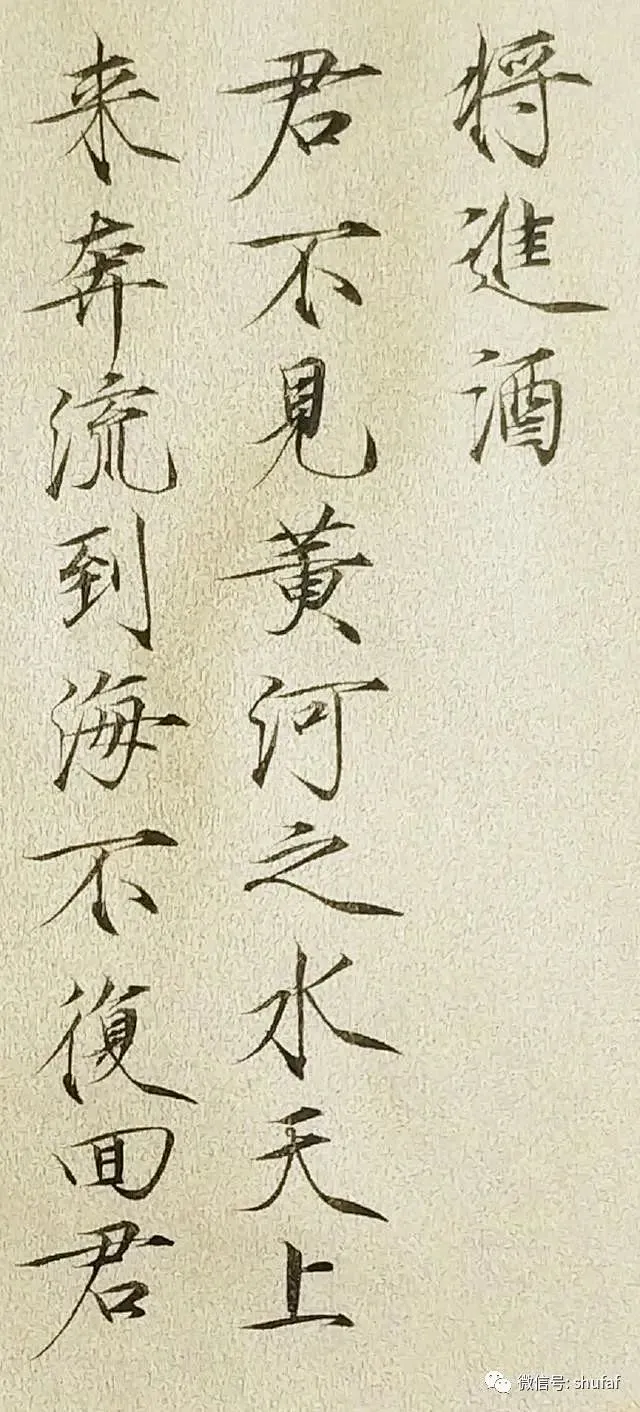 将進酒
君不見黄河之水天上
来奔流到海不復回君
微信号: shufaf